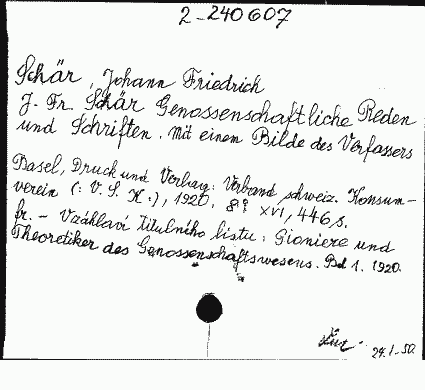 2-240607
Schär, Johann Friedrich
J. Fr. Schär Genossenschaftliche Reden
und Schriften. Mit einem Bilde des Verfassers
Basel, Druck und Verlag: Verband schweiz. Konsum-
verein (: V. S. K.), 1920, 8° XVI, 446 s.
fr. - V záhlaví titulního listu: Pioniere und
Theoretiker des Genossenschaftswesens. Bd 1. 1920.
24.I-50.